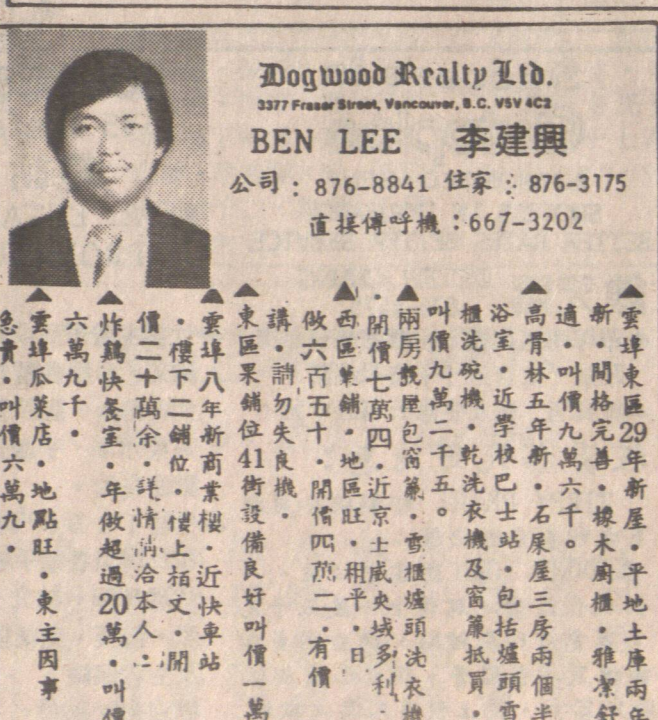 Dogwood Realty Ltd.
3377 Fraser Street, Vancouver, B.C. V5V 4C2
BEN LEE 李建興
公司：876-8841 住家：876-3175
直接傳呼機：667-3202
▲雲埠東區29年新屋．平地土庫兩年
新．間格完善．橡木廚櫃．雅潔舒
適．叫價九萬六千。
▲高骨林五年新．石屎屋三房兩個半
浴室．近學校巴士站．包括爐頭雪
櫃洗碗機．乾洗衣機及窗簾抵買．
叫價九萬二千五。
▲兩房靚屋包窗簾．雪櫃爐頭洗衣機
．開價七萬四．近京士威央域多利．
▲西區菜舖．地區旺．租平．日
做六百五十．開價四萬二．有價
講．請勿失良機．
▲東區果舖位41街設備良好叫價一萬
▲雲埠八年新商業樓．近快車站
．樓下二舖位．樓上栢文．開
價二十萬余．詳情請洽本人
▲炸鷄快餐室．年做超過20萬．叫價
六萬九千．
▲雲埠瓜菜店．地點旺．東主因事
急賣．叫價六萬九．